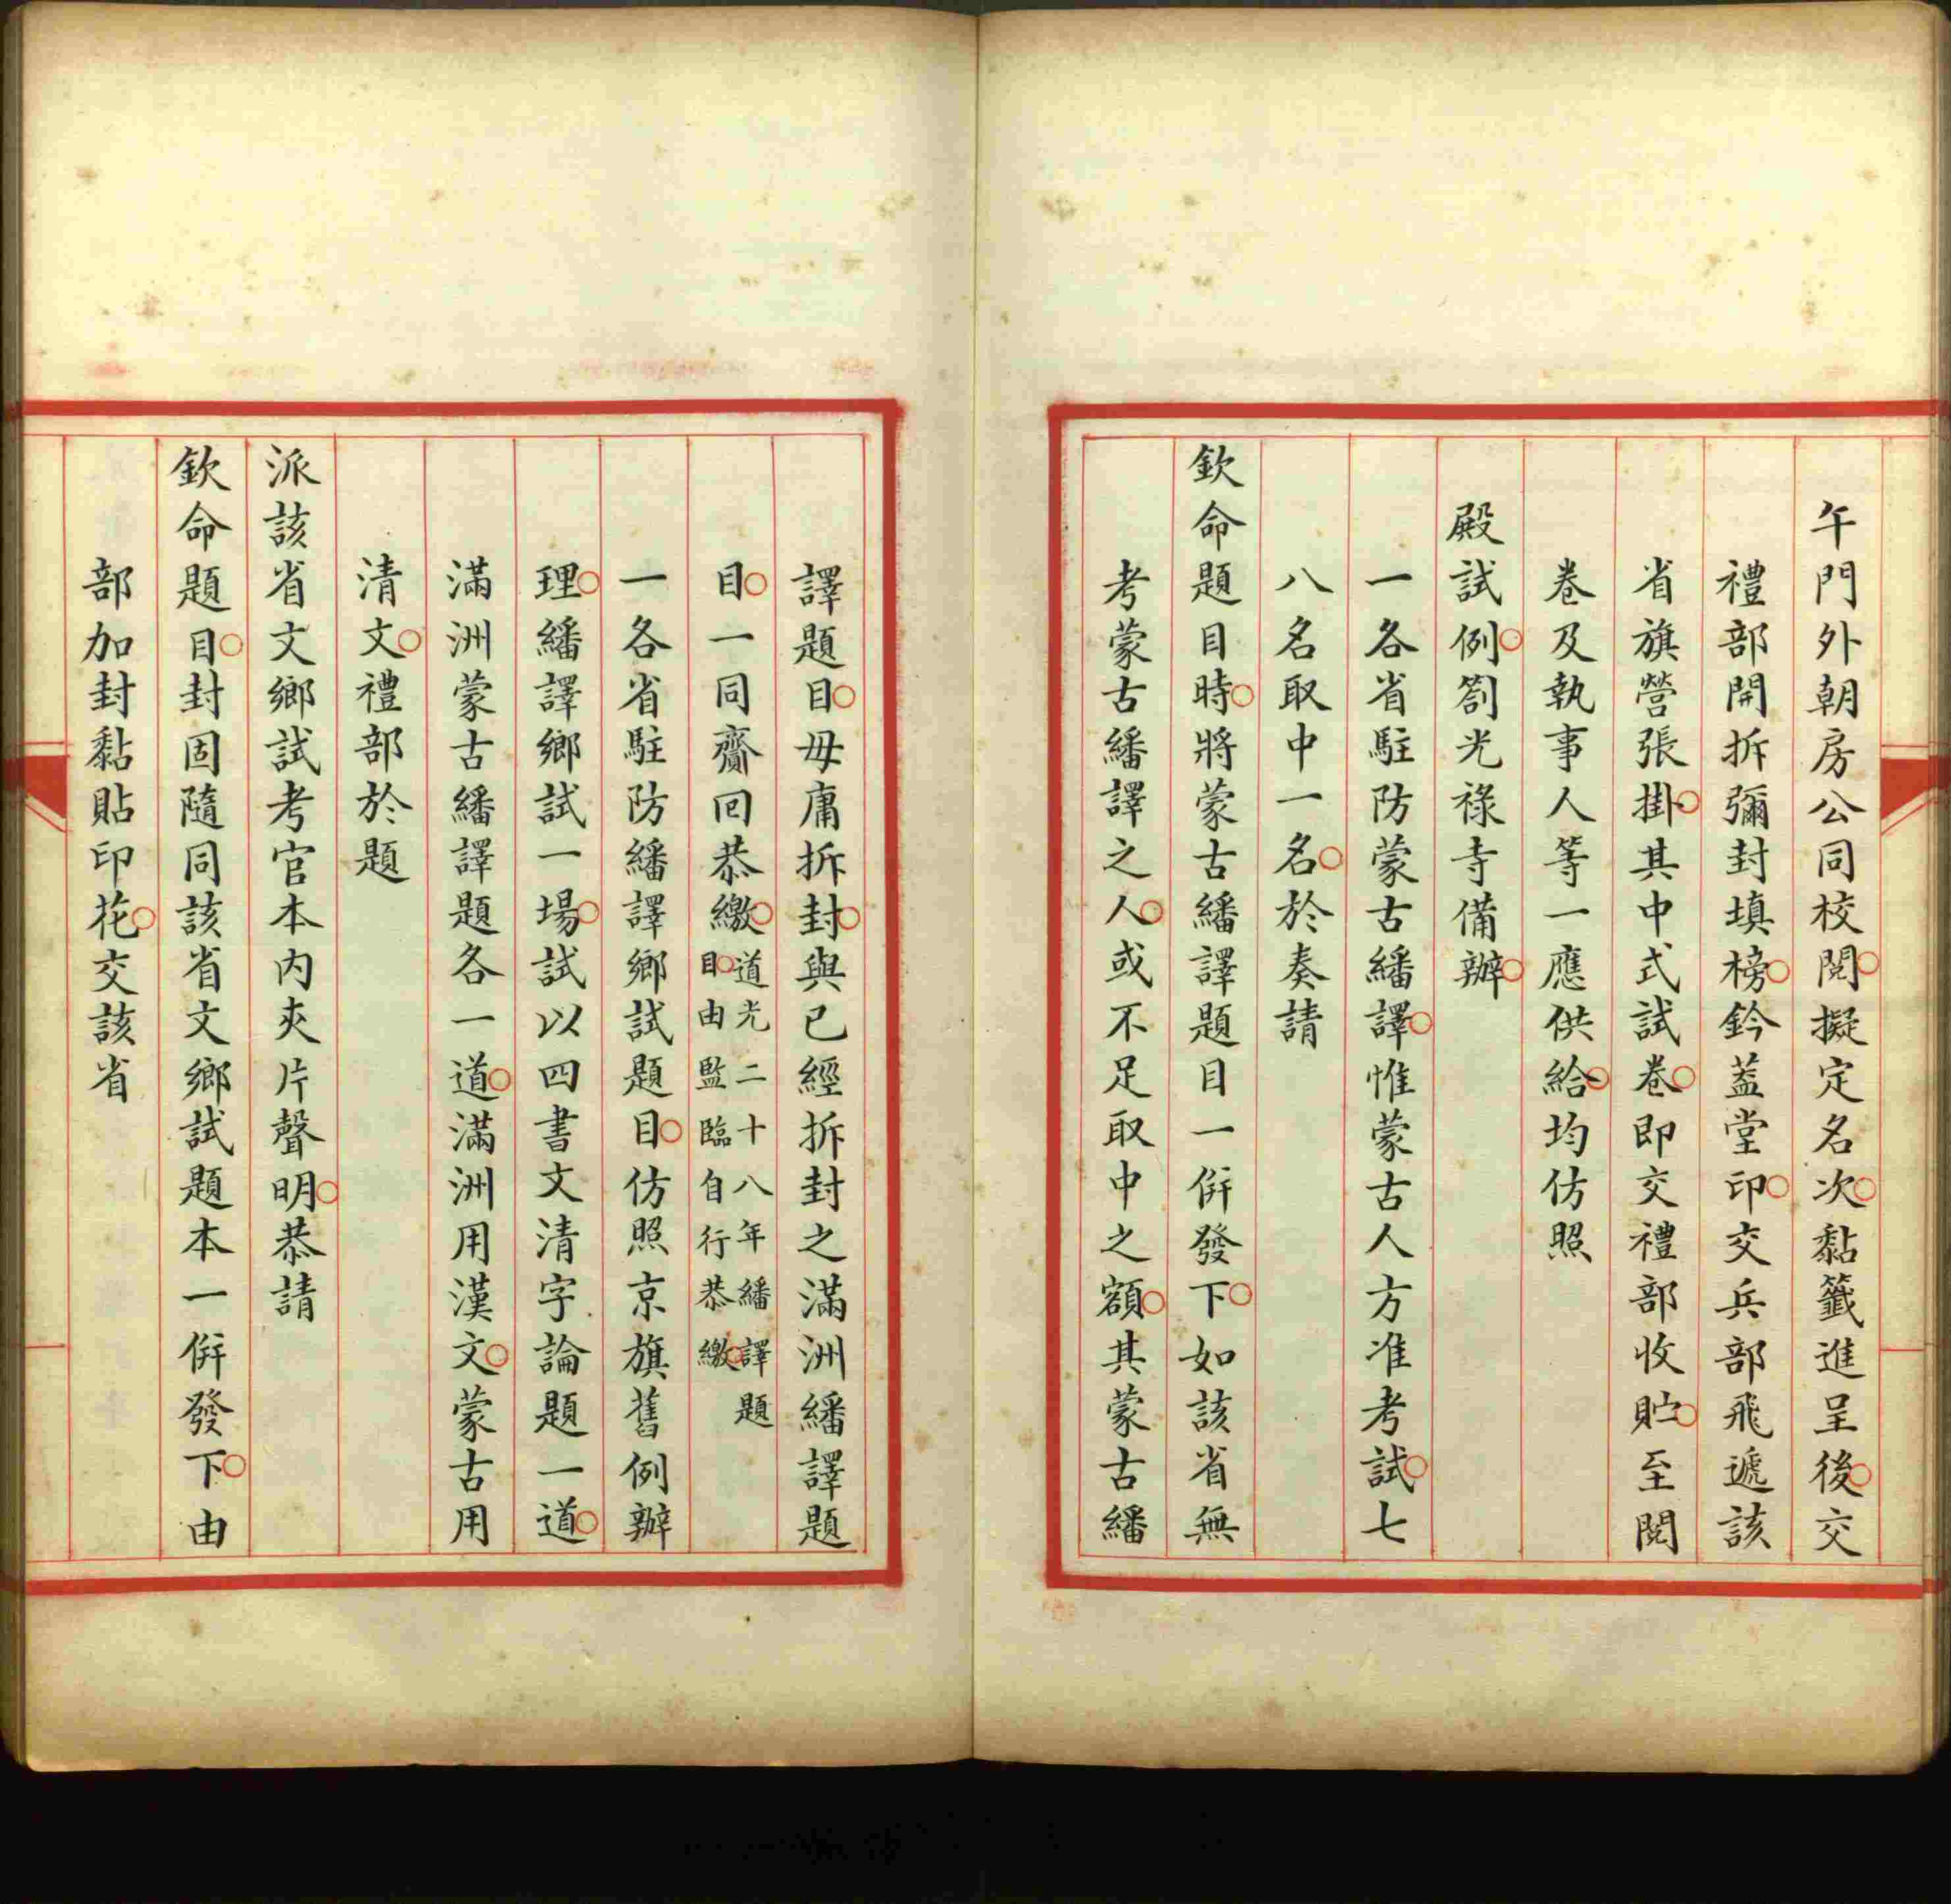 午門外朝房公同校閱擬定名次黏籤進呈後交
禮部開拆彌封填榜鈐蓋堂印交兵部飛遞該
省旗營張掛其中式試卷即交禮部收貯至閱
卷及執事人等一應供給均仿照
殿試例劄光祿寺備辦
一各省駐防蒙古繙譯惟蒙古人方准考試七
八名取中一名於奏請
欽命題目時將蒙古繙譯題目一併發下如該省無
考蒙古繙譯之人或不足取中之額其蒙古繙
譯題目毋庸拆封與已經拆封之滿洲繙譯題
目一同齎回恭繳道光二十八年繙譯題
目由監臨自行恭繳
一各省駐防繙譯鄉試題目仿照京旗舊例辦
理繙譯鄉試一場試以四書文清字論題一道
滿洲蒙古繙譯題各一道滿洲用漢文蒙古用
清文禮部於題
派該省文鄉試考官本內夾片聲明恭請
欽命題目封固隨同該省文鄉試題本一併發下由
部加封黏貼印花交該省